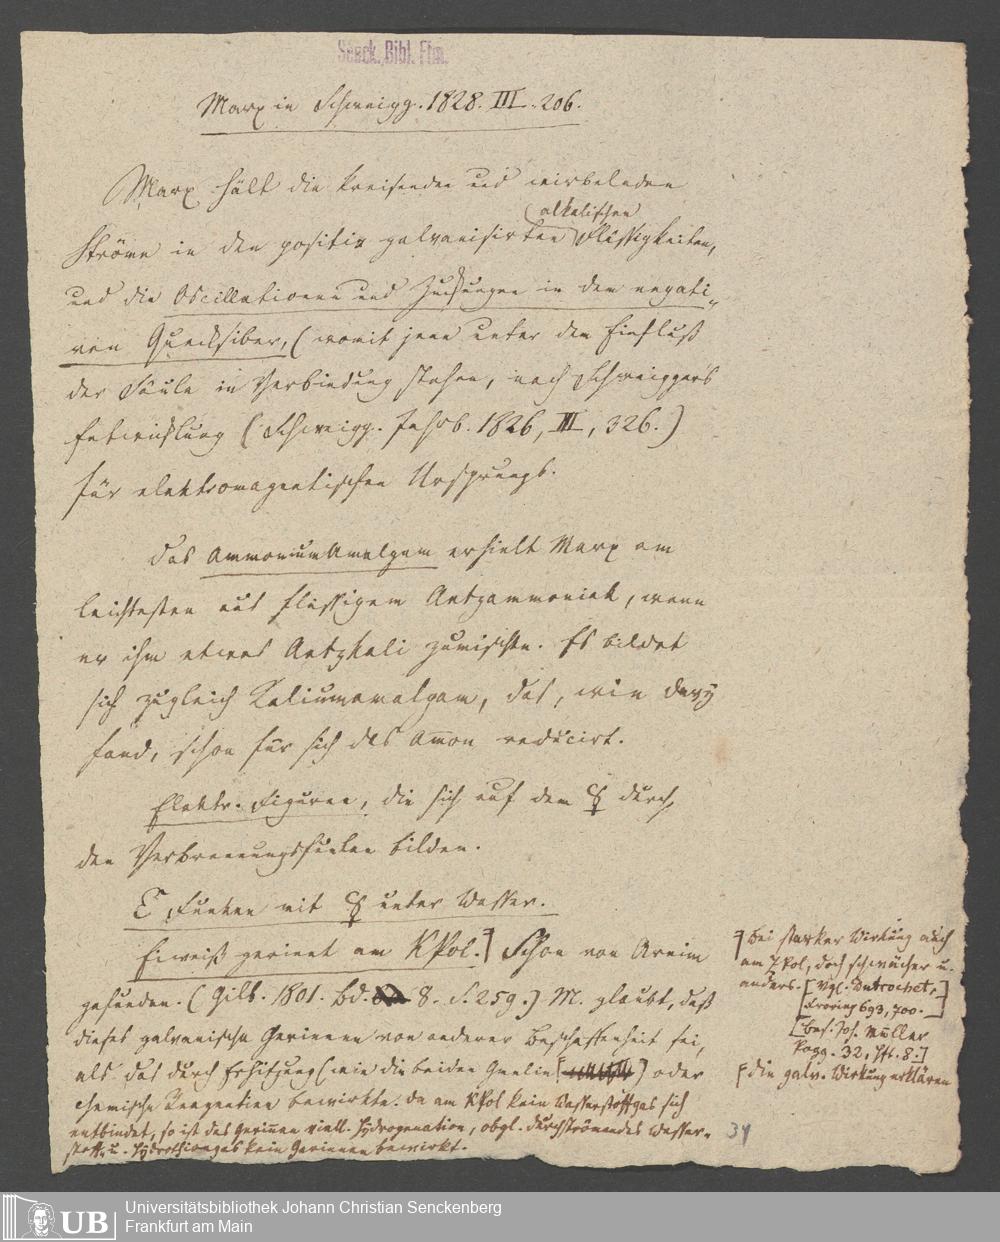 Senck. Bibl. Ffm.
Marx in Schweigg. 1828. III. 206.
Marx hält die kreisenden und wirbelnden
alkalischen
Ströme in den positiv galvanisirten Flüssigkeiten,
und die Oscillationen und Zuckungen in dem negati-
ven Quecksilber, (womit jene unter dem Einfluß
der Säule in Verbindung stehen, nach Schweiggers
Entwicklung (Schweigg. Jahrb. 1826, III, 326.)
für elektromagnetischen Ursprungs.
Das AmmoniumAmalgam erhielt Marx am
leichtesten aus flüssigem Aetzammoniak, wenn
er ihm etwas Aetzkali zumischte. Es bildet
sich zugleich Kaliumamalgam, das, wie Davy
fand, schon für sich das Amon reducirt.
Elektr. Figuren, die sich auf dem ☿ durch
den Verbrennungsfunken bilden.
Funken mit ☿ unter Wasser.
Eiweiß gerinnt am KPol. Schon von Arnim
gefunden. (Gilb. 1801. Bd. 8. S. 259.) M. glaubt, daß
dieses galvanische Gerinnen von anderer Beschaffenheit sei,
als das durch Erhitzung (wie die beiden Gmelin) oder
chemische Reagentien bewirkte. da am KPol kein Wasserstoffgas sich
entbindet, so ist das Gerinnen viell. Hydrogenation, obgl. durchströmendes Wasser-
stoff- u. Hydrothiongas kein Gerinnen bewirkt.
bei starker Wirkung auch
am ZPol, doch schwächer u.
anders. [Vgl. Dutrochet,
Froriep 693, 700.]
[Bes. Joh. Müller
Pogg. 32, Hft. 8.]
die galv. Wirkung erklären
34
UB
Universitätsbibliothek Johann Christian Senckenberg
Frankfurt am Main